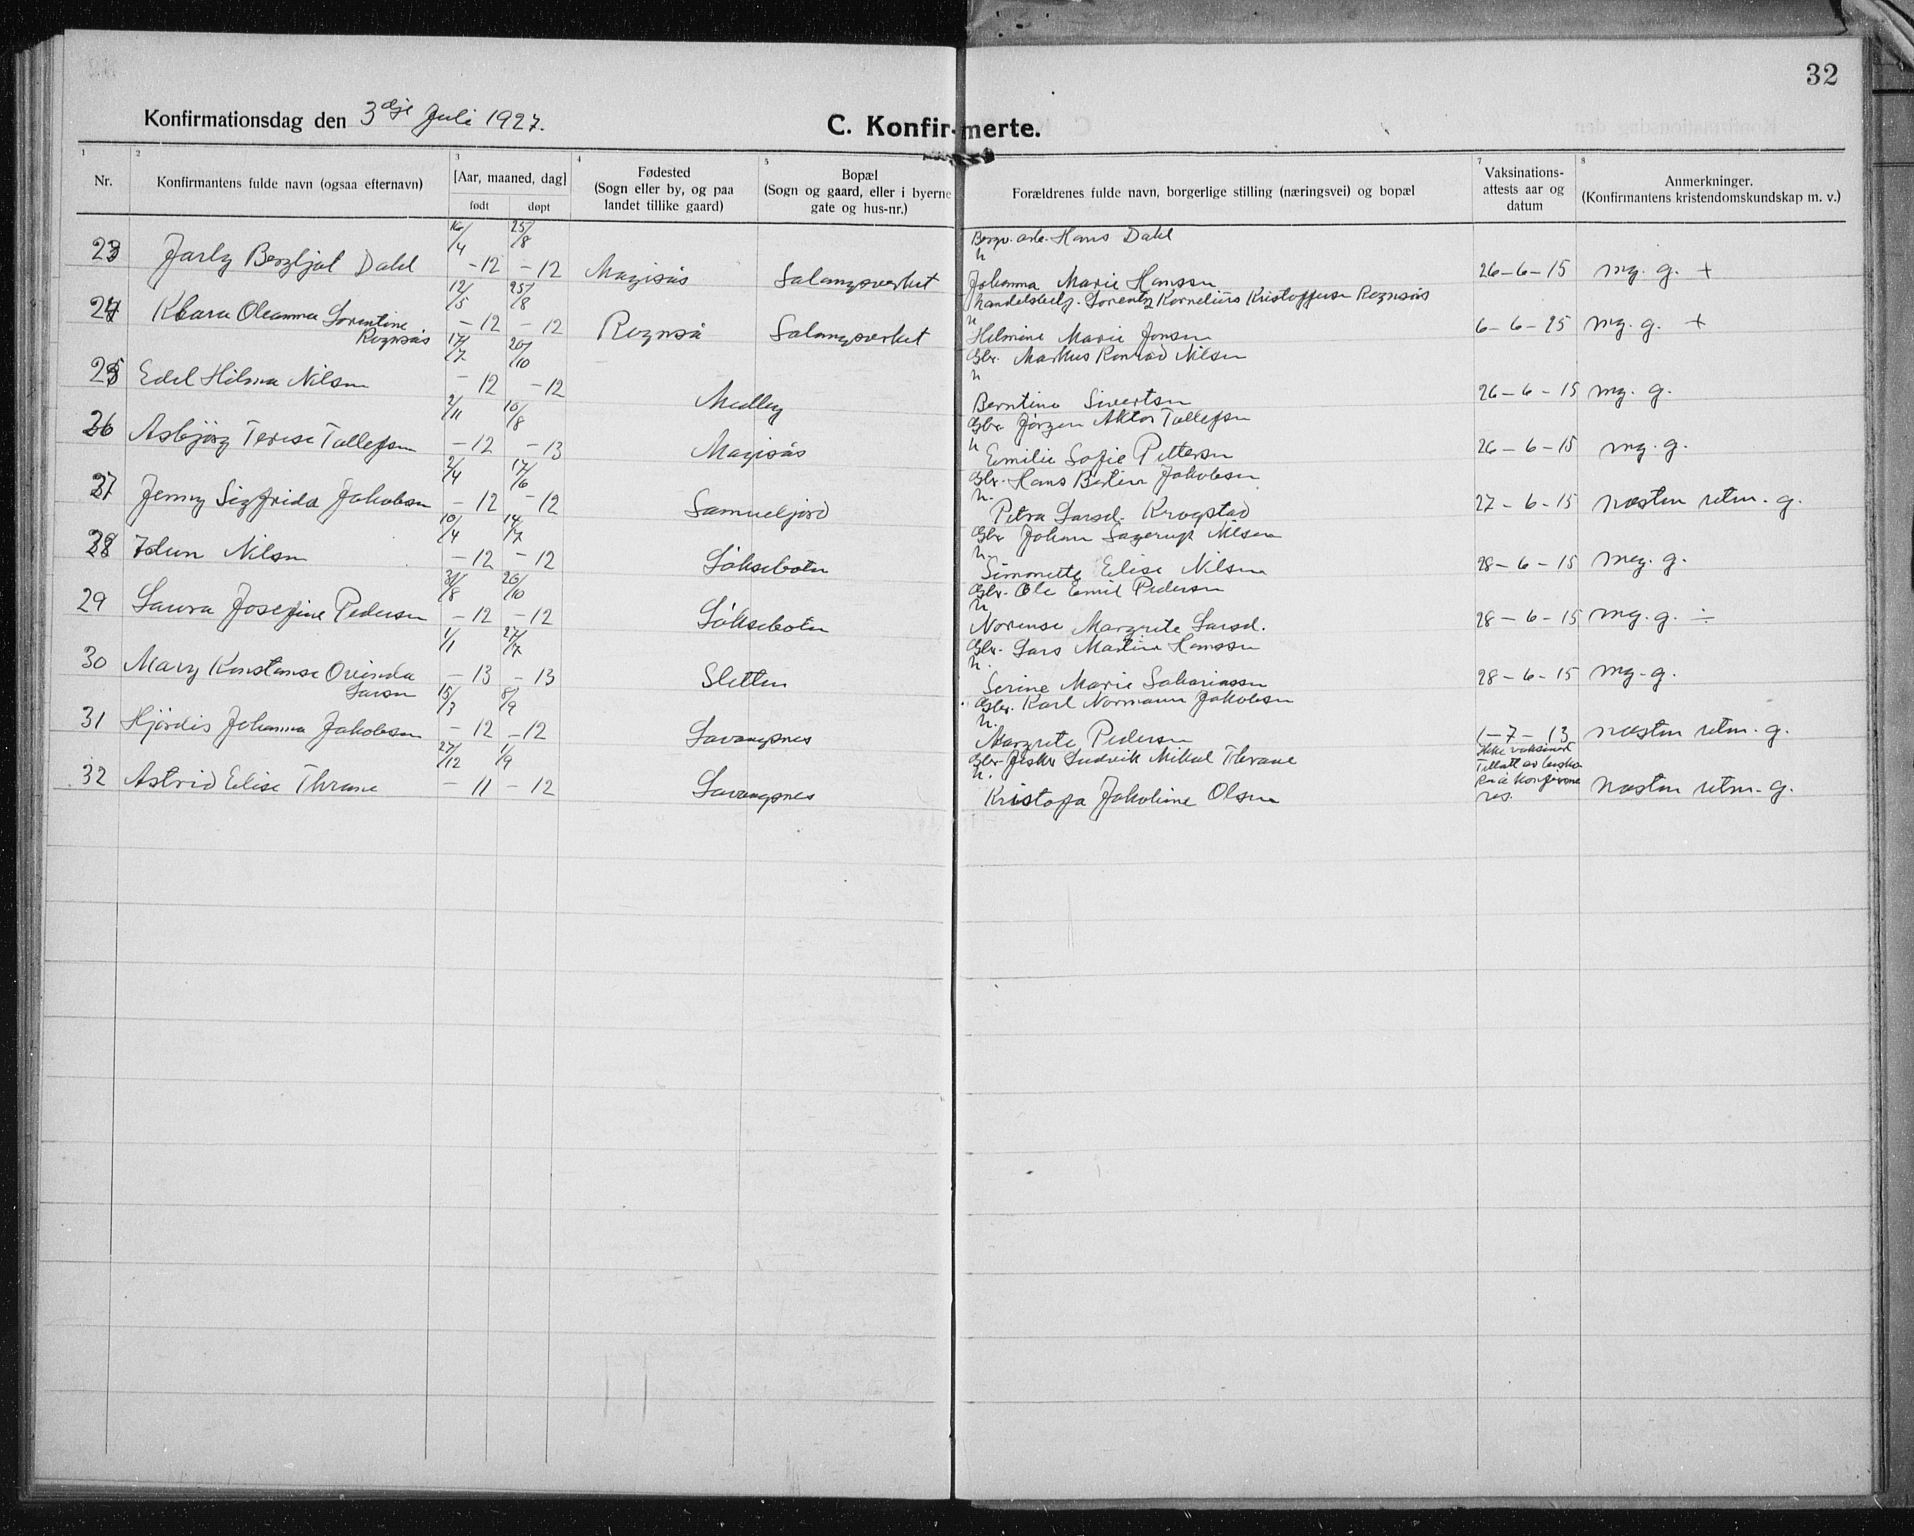 32
Konfirmationsdag den 3dje Juli 1927.
C. Konfirmerte.
1 2 3 4 5 7 8
Nr. Konfirmantens fulde navn (ogsaa efternavn) [Aar, maaned, dag] født døpt Fødested (Sogn eller by, og paa landet tillike gaard) Bopæl (Sogn og gaard, eller i byerne gate og hus-nr.) Forældrenes fulde navn, borgerlige stilling (næringsvei) og bopæl Vaksinations-attests aar og datum Anmerkninger. (Konfirmantens kristendomskundskap m. v.)
23 Jarly Bergljot Dahl 16/4 -12 25/8 -12 Magisås Salangsverket Bergv. arb. Hans Dahl
Johanna Marie Hanssen 26-6-15 mg. g. +
24 Klara Oleanna Lorentine Rognsås 12/5 -12 25/8 -12 Rognså Salangsverket Handelsbetj. Lorentz Kornelius Kristoffersen Rognsås
Helmine Marie Jonsen 6-6-25 mg. g. +
25 Edel Hilma Nilsen 17/7 -12 20/10 -12 Medby Gbr. Markus Konrad Nilsen
Berntine Sivertsen 26-6-15 mg. g.
26 Asbjörg Terese Tollefsen 2/11 -12 10/8 -13 Magisås Gbr. Jörgen Aktor Tollefsen
Emilie Sofie Pettersen 26-6-15 mg. g.
27 Jenny Sigfrida Jakobsen 2/4 -12 17/6 -12 Samueljord Gbr. Hans Bertin Jakobsen
Petra Larsd. Krogstad 27-6-15 næsten utm. g.
28 Idun Nilsen 10/4 -12 14/7 -12 Löksebotn Gbr. Johan Sagerup Nilsen
Simonette Elise Nilsen 28-6-15 meg. g.
29 Laura Josefine Pedersen 31/8 -12 20/10 -12 Löksebotn Gbr. Ole Emil Pedersen
Norense Margrete Larsd. 28-6-15 mg. g. ÷
30 Mary Konstanse Ovinda Larsen 1/1 -13 27/7 -13 Sletten Gbr. Lars Martin Hanssen
Serine Marie Sakariassen 28-6-15 mg. g.
31 Hjördis Johanna Jakobsen 15/3 -12 8/9 -12 Lavangsnes Gbr. Karl Normann Jakobsen
Margrete Pedersen 1-7-13 næsten utm. g.
32 Astrid Elise Thrane 27/12 -11 1/9 -12 Lavangsnes Gbr. fisker Ludvik Mikal Thrane
Kristofa Jakobine Olsen Ikke vaksinert Tillatt av å konfirmeres. næsten utm. g.